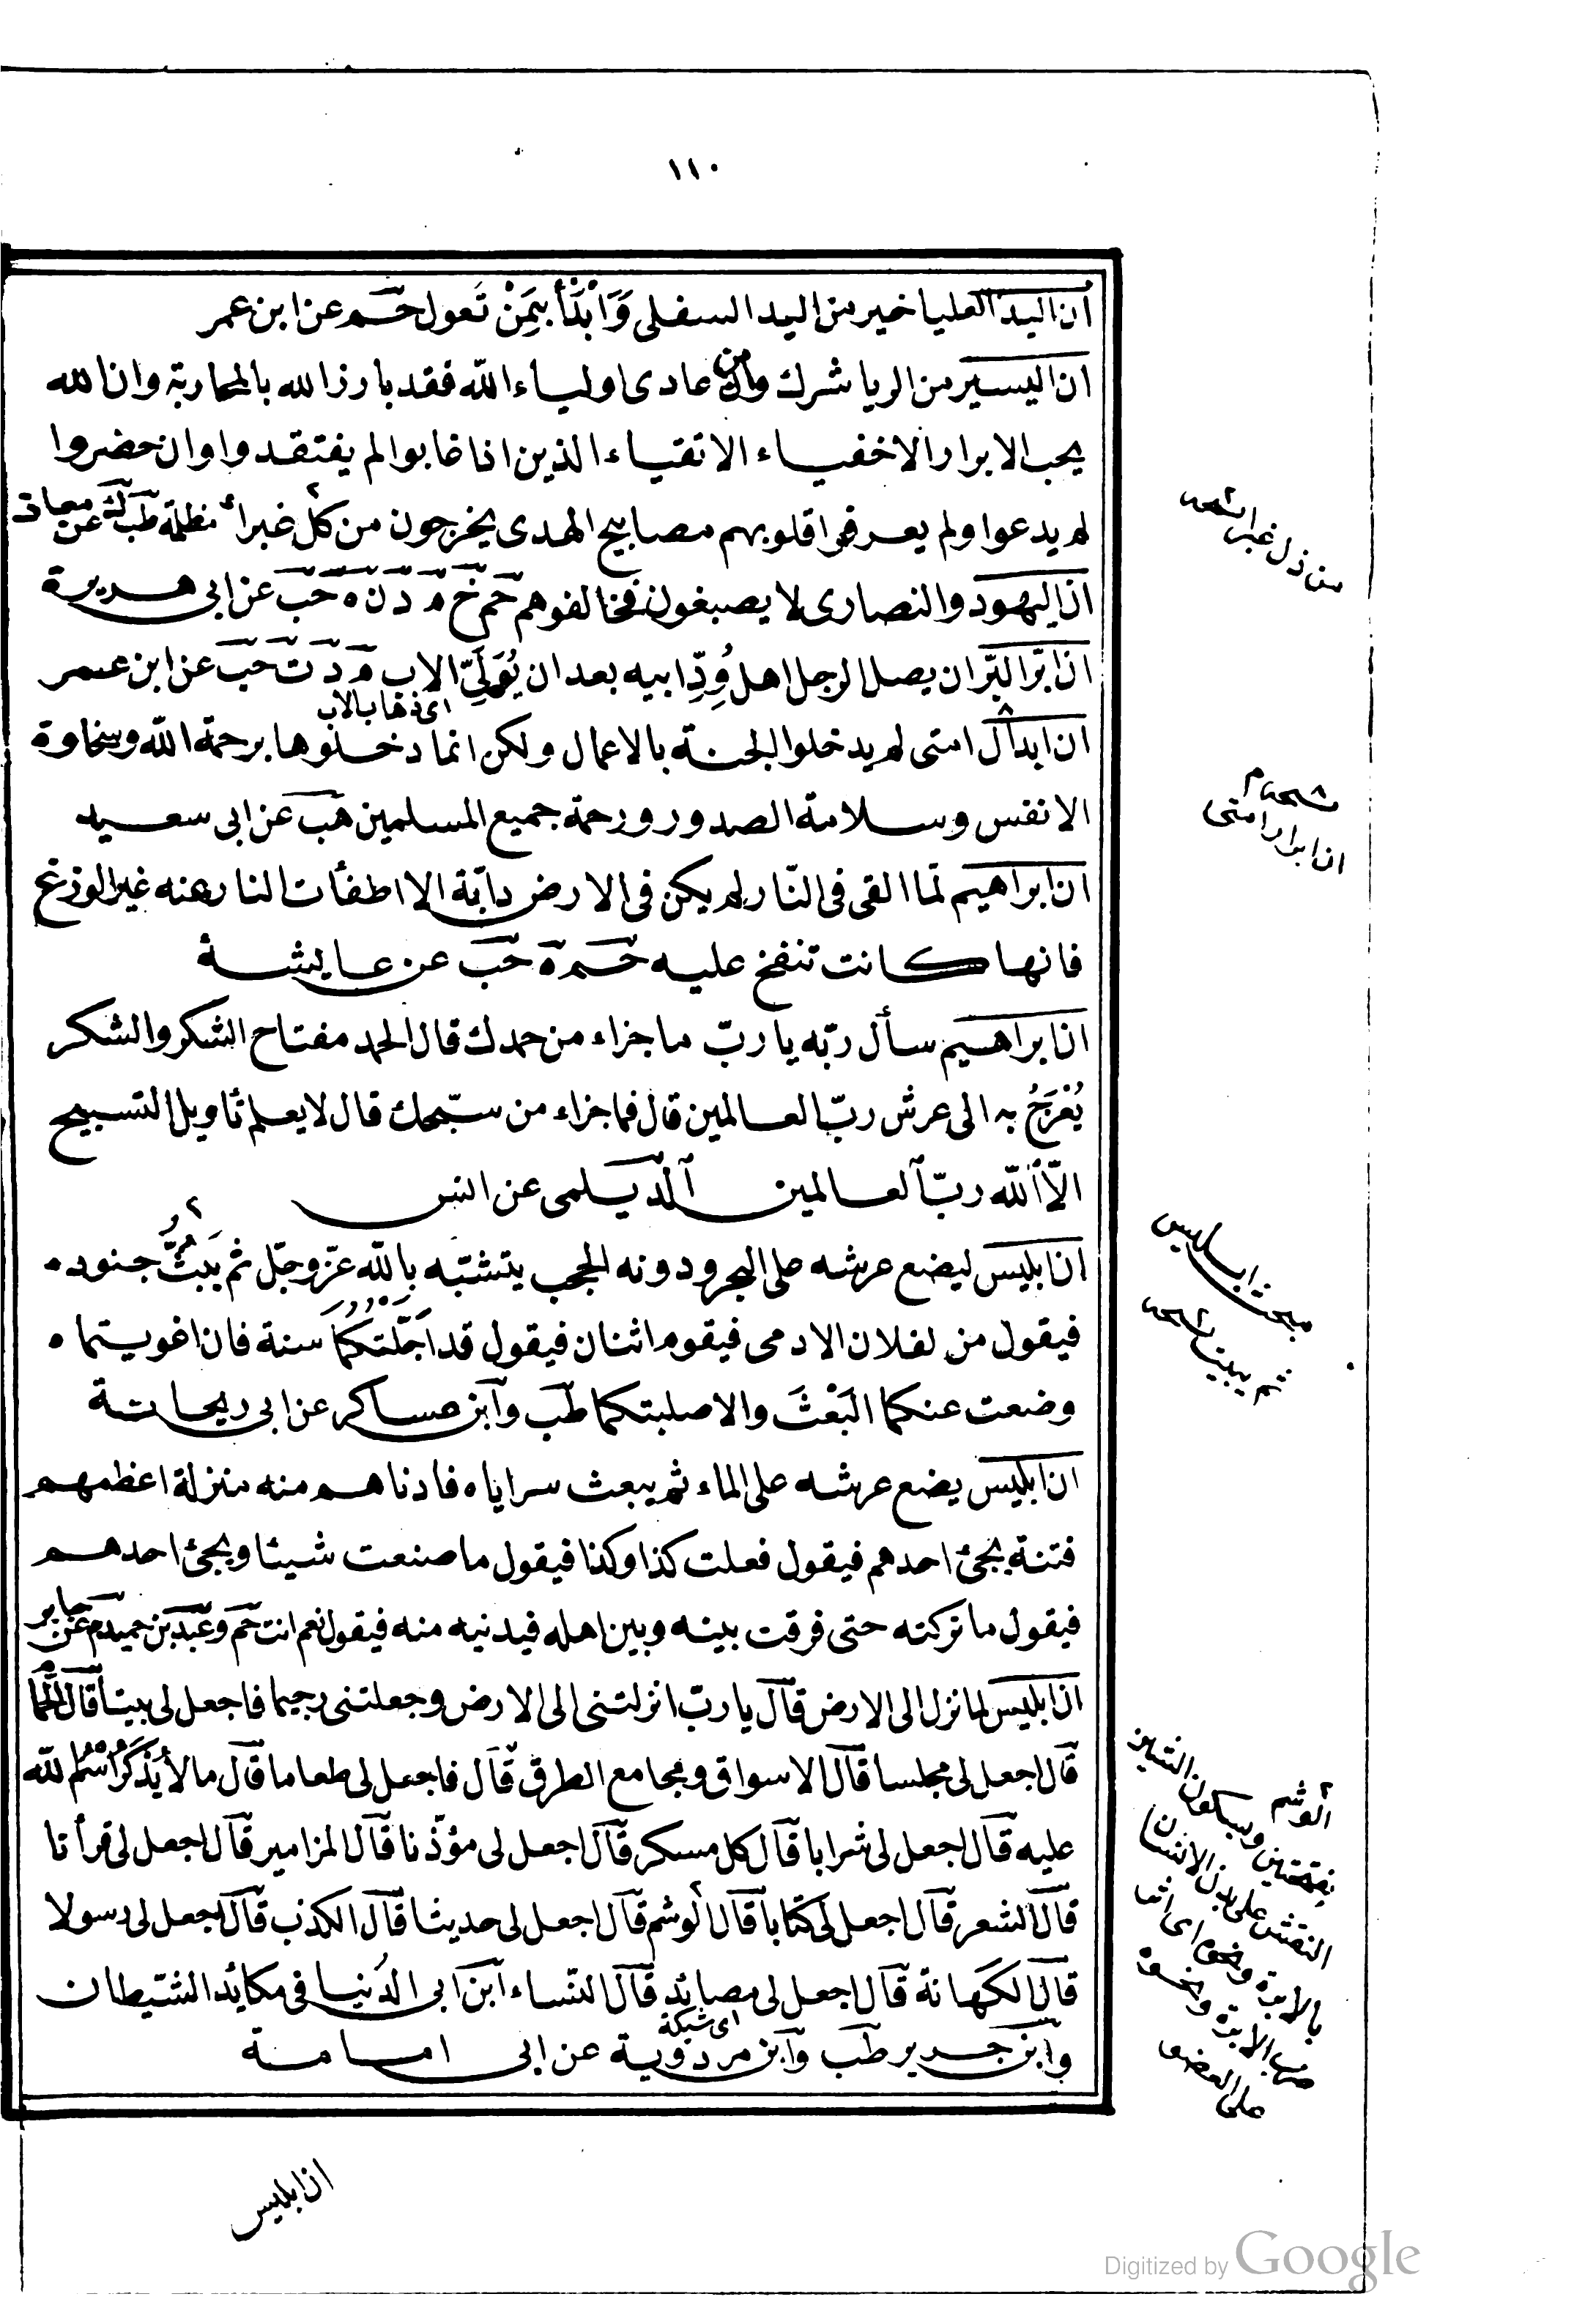 ١١٠
ان اليد العليا خير من اليد السفلى وَابْدَأْ بِمَنْ تَعول حم عن ابن عمر
ان اليسير من الريا شرك وان من عادى اولياء اللّه فقد بارز الله بالمحاربة وان الله
يحب الابرار الاخفياء الاتقياء الذين اذا غابوا لم يفتقدوا وان حضروا
لم يدعوا ولم يعرفوا قلوبهم مصابيح الهدى يخرجون من كل غبراء مظلمة طب ك عن معاذ
ان اليهود والنصارى لا يصبغون فخالفوهم حم خ م د ن ه حب عن ابى هريرة
ان ابرّ البّر ان يصل الرجل اهل وُدِّ ابيه بعد ان يُوَلِّىَ الاب م د ت حب عن ابن عمر
اى ذهابا لاب
ان ابدال امتى لم يدخلوا الجنة بالاعمال ولكن انما دخلوها برحمة اللّه وسخاوة
الانفس وسلامة الصدور ورحمة جميع المسلمين هب عن ابى سعيد
ان ابراهيم لمّا القى فى النّار لم يكن فى الارض دابّة الا اطفأت النار عنه غير الوزغ
فانها كانت تنفخ عليه حم ه حب عن عايشة
ان ابراهيم سأل ربّه يا ربّ ما جزاء من حمدك قال الحمد مفتاح الشكر والشكر
يُعْرَجُ به الى عرش ربّ العالمين قال فما جزاء من سبّحك قال لا يعلم تاويل التسبيح
الّا اللّه ربّ العالمين الديلمى عن انس
ان ابليس ليضع عرشه على البحر ودونه الحجب يتشبّه باللّه عزّ وجلّ ثم يَبُثُّ جنوده
فيقول من لفلان الادمى فيقوم اثنان فيقول قد اَجَّلْتُكُمَا سنة فان اغويتماه
وضعت عنكما الَبْعْثَ والا صلبتكما طب وابن عساكر عن ابى ريحانة
ان ابليس يضع عرشه على الماء ثم يبعث سراياه فادناهم منه منزلة اعظمهم
فتنة يجئ احدهم فيقول فعلت كذا وكذا فيقول ما صنعت شيئا ويجئ احدهم
فيقول ما تركته حتى فرقت بينه وبين اهله فيدنيه منه فيقول نعم انت حم وعبد بن حميد م عن جابر
ان ابليس لما نزل الى الارض قال يا ربّ انزلتنى الى الارض وجعلتنى رجيما فاجعل لى بيتا قال الحمام
قال اجعل لى مجلسا قال الاسواق ومجامع الطرق قال فاجعل لى طعاما قال ما لا يُذْكَرُ اسْمُ اللّه
عليه قال اجعل لى شرابا قال كل مسكر قال اجعل لى مؤذّنا قال المزامير قال اجعل لى قرأنا
قال الشعر قال اجعل لى كتابا قال الوشم قال اجعل لى حديثا قال الكذب قال اجعل لى رسولا
قال الكَهَانة قال اجعل لى مصائد قال النّساء ابن ابى الدُنيا فى مكائد الشّيطان
اى شبكة
وابن جرير طب وابن مردوية عن ابى امامة
ان ابليس
ان ابرار امتى
مبحث ابليس
الوشم
بفتحتين وبسكون الشين
النقش على بدن الانسان
بالابرة
على العضو
Digitized by Google